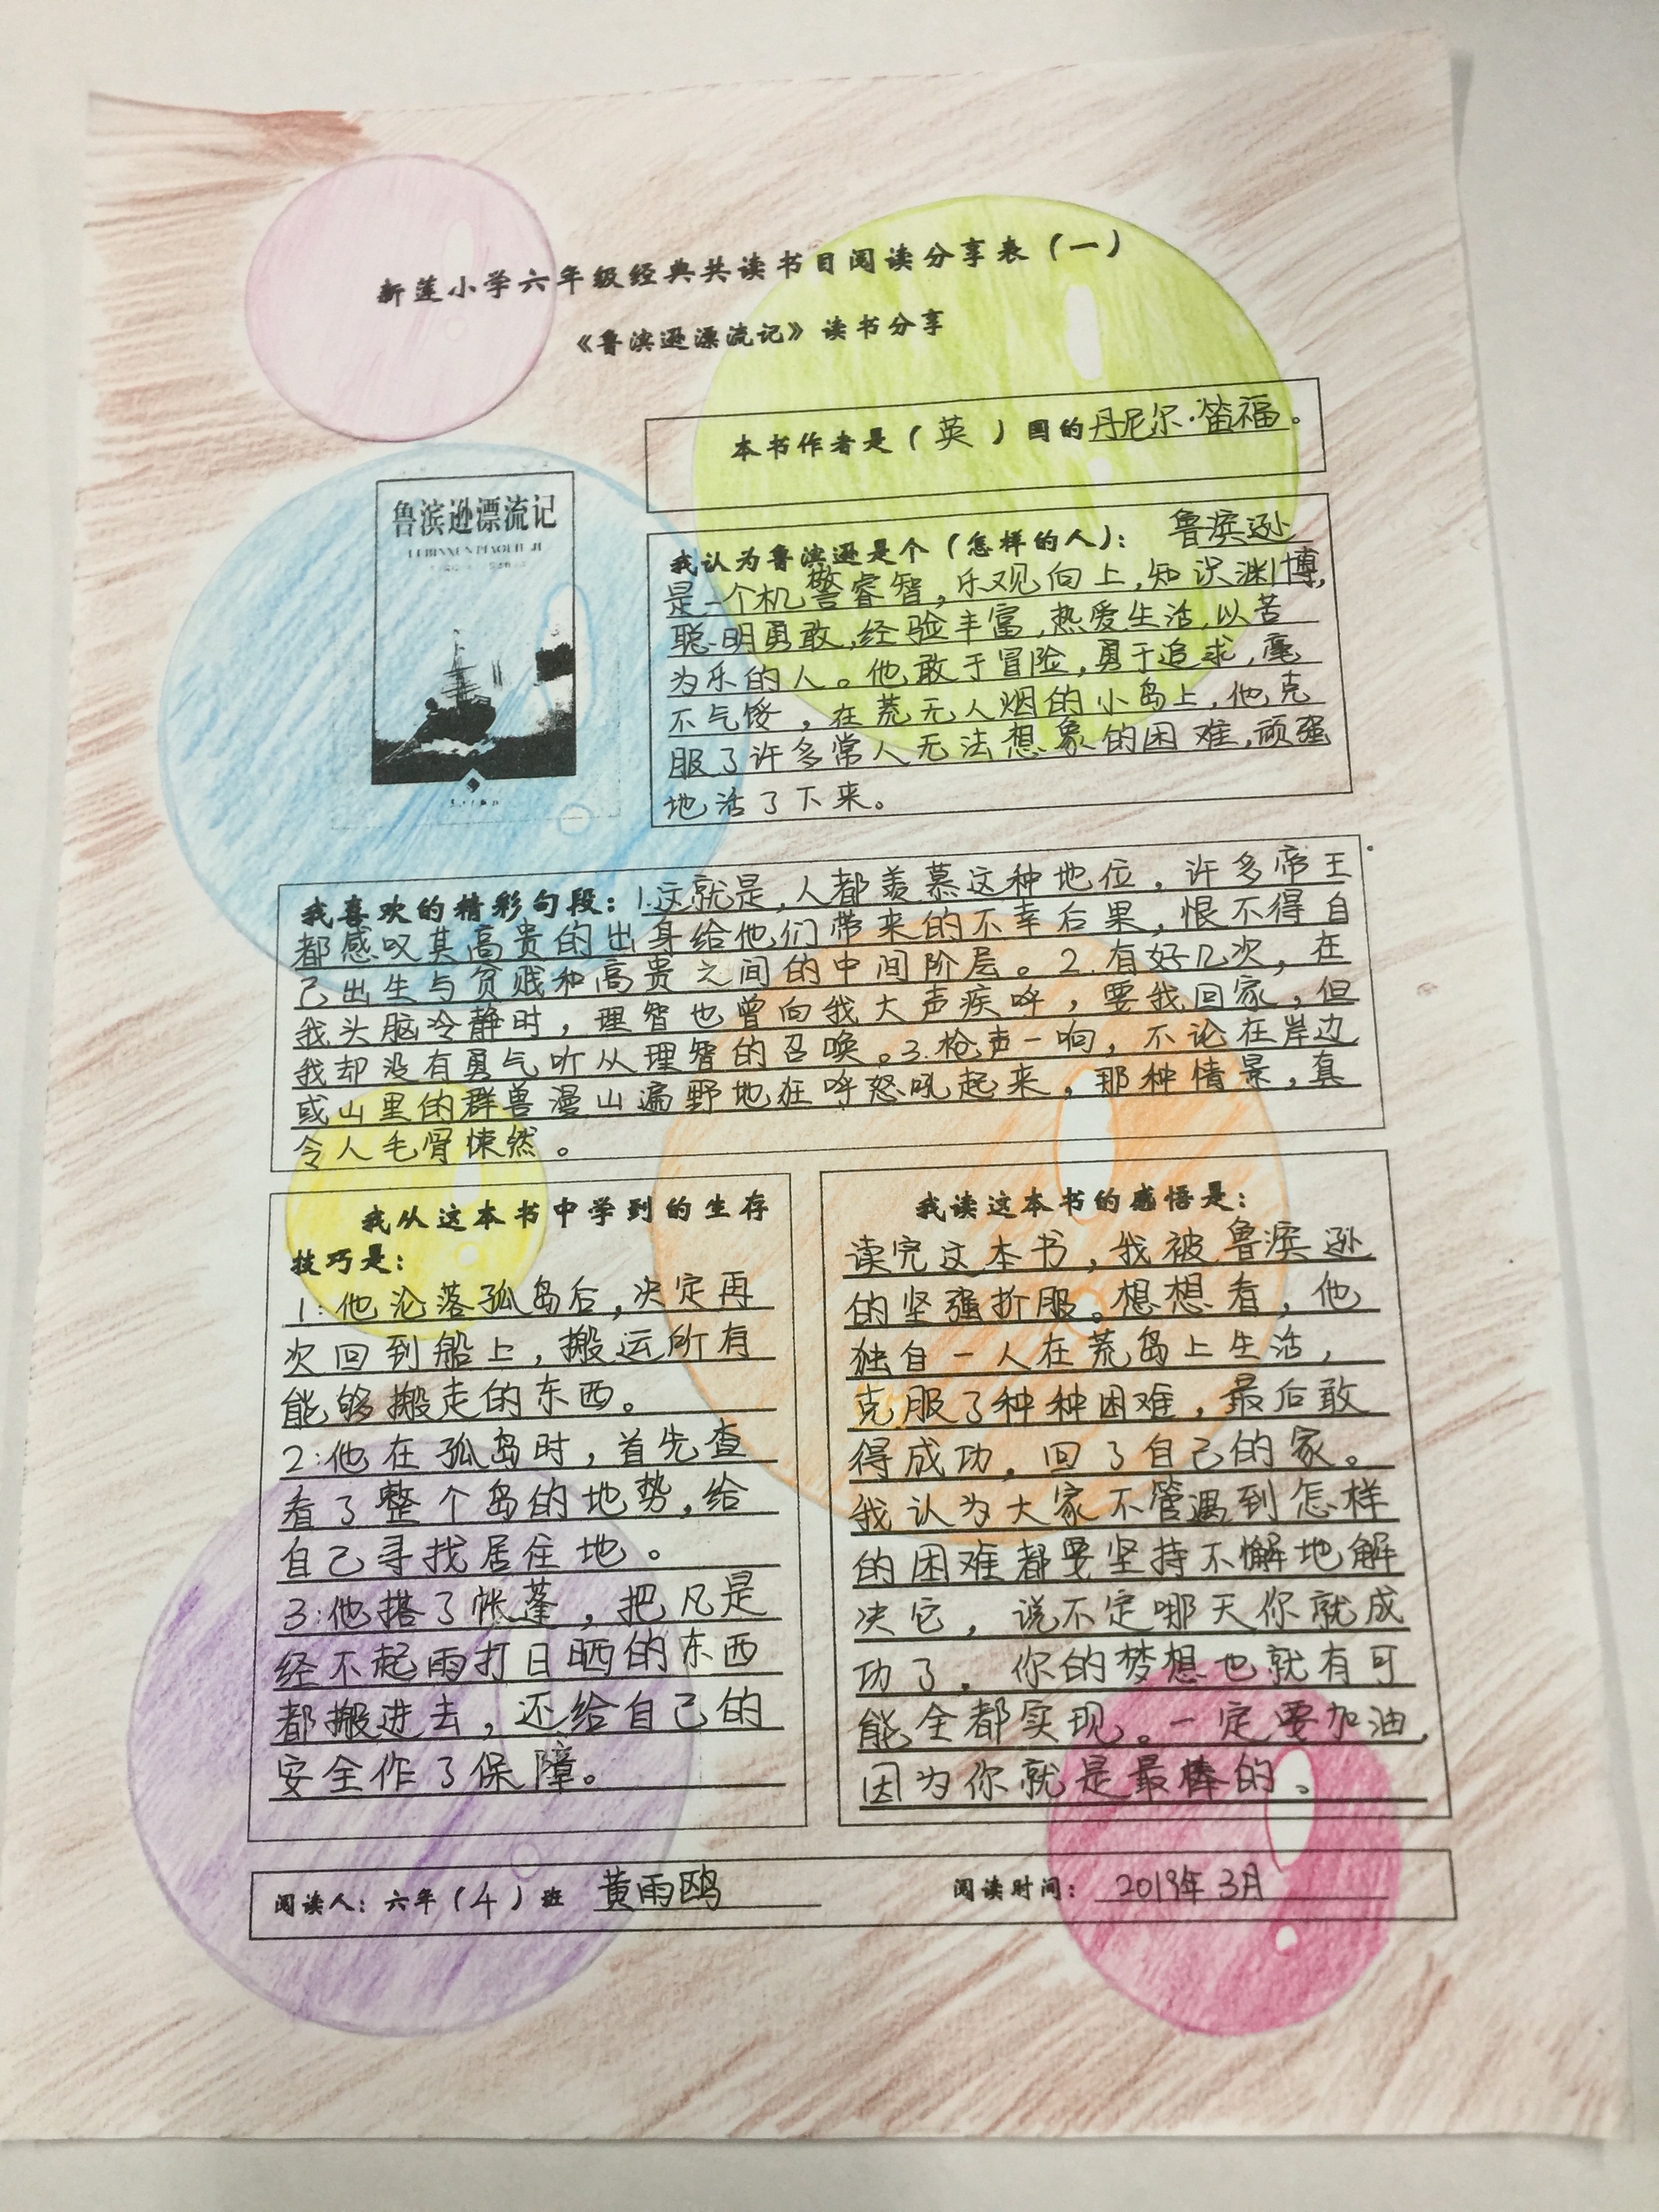 新莲小学六年级经典共读书目阅读分享表（一）
《鲁滨逊漂流记》读书分享
本书作者是（英）国的丹尼尔·笛福。
鲁滨逊漂流记
我认为鲁滨逊是个（怎样的人）：鲁滨逊
是一个机警睿智，乐观向上，知识渊博，
聪明勇敢，经验丰富，热爱生活，以苦
为乐的人。他敢于冒险，勇于追求，毫
不气馁，在荒无人烟的小岛上，他克
服了许多常人无法想象的困难，顽强
地活了下来。
我喜欢的精彩句段：1.这就是，人都羡慕这种地位，许多帝王
都感叹其高贵的出身给他们带来的不幸后果，恨不得自
己出生与贫贱和高贵之间的中间阶层。2.有好几次，在
我头脑冷静时，理智也曾向我大声疾呼，要我回家，但
我却没有勇气听从理智的召唤。3.枪声一响，不论在岸边
或山里的群兽漫山遍野地狂呼怒吼起来，那种情景，真
令人毛骨悚然。
我从这本书中学到的生存
技巧是：
1:他沦落孤岛后，决定再
次回到船上，搬运所有
能够搬走的东西。
2:他在孤岛时，首先查
看了整个岛的地势，给
自己寻找居住地。
3:他搭了帐蓬，把凡是
经不起雨打日晒的东西
都搬进去，还给自己的
安全作了保障。
我读这本书的感悟是：
读完这本书，我被鲁滨逊
的坚强折服。想想看，他
独自一人在荒岛上生活，
克服了种种困难，最后敢
得成功，回了自己的家。
我认为大家不管遇到怎样
的困难都要坚持不懈地解
决它，说不定哪天你就成
功了。你的梦想也就有可
能全都实现。一定要加油，
因为你就是最棒的。
阅读人：六年（4）班 黄雨鸥 阅读时间：2019年3月